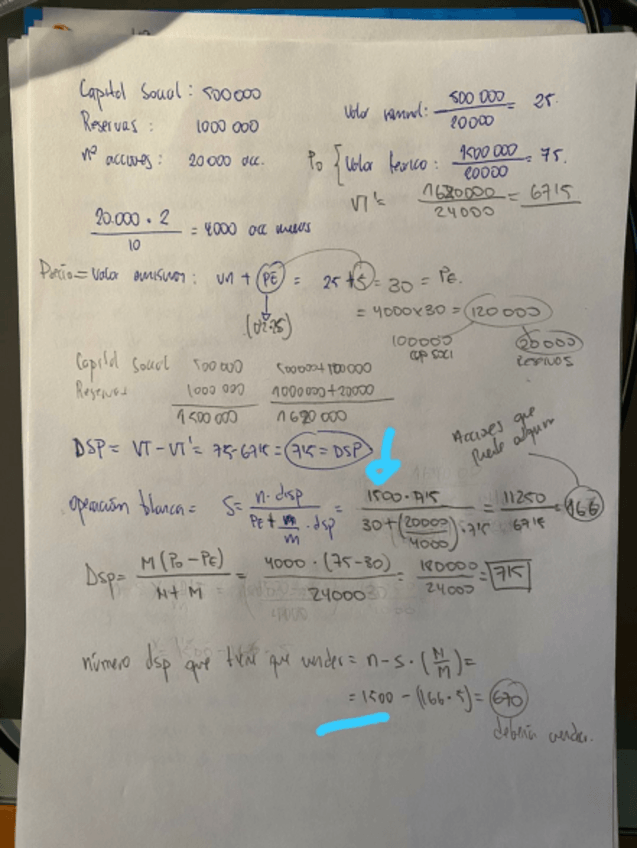 Capital Social: 500000
Valor nominal: 500 000 / 20000 = 25.
Reservas: 1000 000
nº acciones: 20000 acc.
Po { Valor teorico: 1500 000 / 20000 = 75.
VT' = 1620000 / 24000 = 67'5
20.000 · 2 / 10 = 4000 acc nuevas
Precio = Valor emisión: VN + PE = 25 + 5 = 30 = PE.
= 4000x30 = 120000
100000 cap soci
20000 reservas
Capital Social 500000 500000+100000
Reservas 1000 000 1000000+20000
1500000 1620000
DSP = VT - VT' = 75-67'5 = 7'5 = DSP
Acciones que puede
operación blanca = S = n · dsp / PE + N/M · dsp = 1500 · 7'5 / 30 + (20000/4000) · 7'5 = 11250 / 67'5 = 166
Dsp = M (Po - PE) / N + M = 4000 · (75-30) / 24000 = 180000 / 24000 = 7'5
número dsp que tiene que vender = n - s · (N/M) =
= 1500 - (166 · 5) = 670
debería vender.